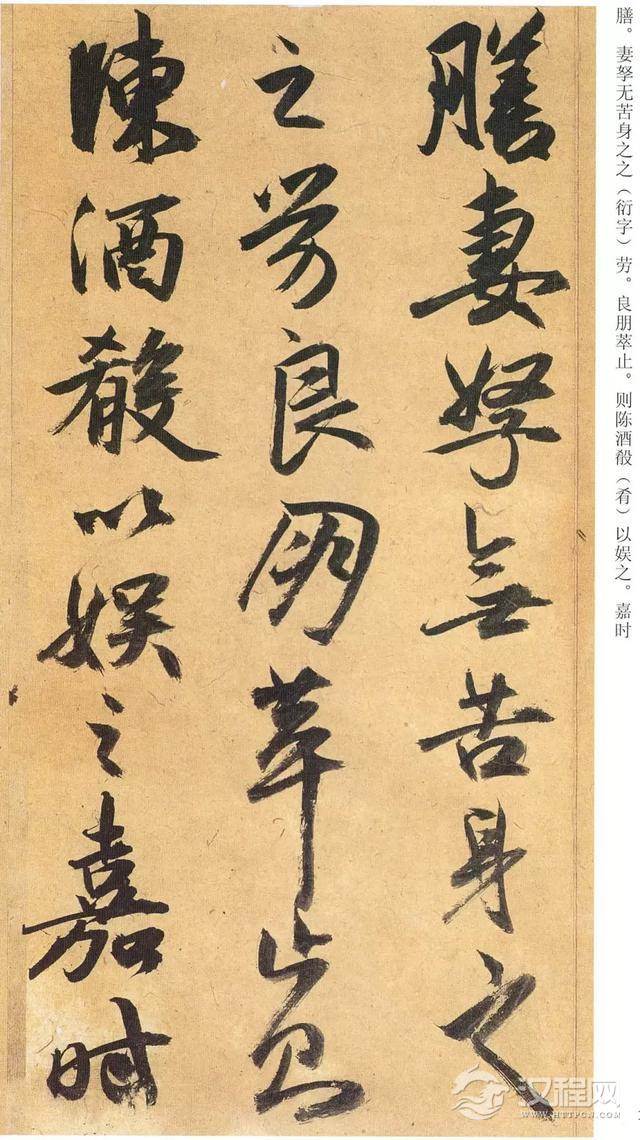 膳。妻孥无苦身之之（衍字）劳。良朋萃止。则陈酒殽（肴）以娱之。嘉时
膳妻孥無苦身之
之勞良朋萃止則
陳酒殽以娛之嘉時
汉程网
WWW.HTTPCN.COM